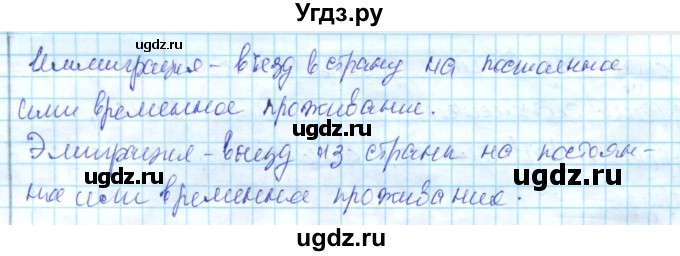 Угдз.ру
Иммиграция – въезд в страну на постоянное
или временное проживание.
Эмиграция – выезд из страны на постоян-
ное или временное проживание.
ugdz.ru
ugdz.ru
ugdz.ru
ugdz.ru
ugdz.ru
ugdz.ru
ugdz.ru